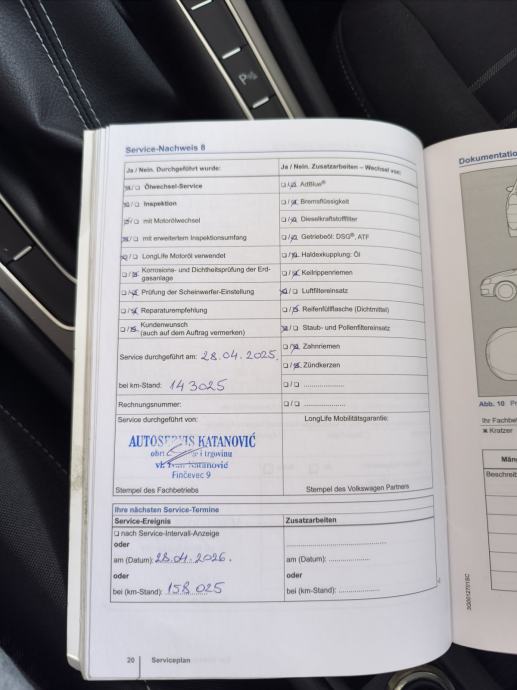 Service-Nachweis 8
Ja / Nein. Durchgeführt wurde:
☒/☐ Ölwechsel-Service
☒/☐ Inspektion
☒/☐ mit Motorölwechsel
☒/☐ mit erweitertem Inspektionsumfang
☒/☐ LongLife Motoröl verwendet
☐/☒ Korrosions- und Dichtheitsprüfung der Erd-
gasanlage
☐/☒ Prüfung der Scheinwerfer-Einstellung
☐/☒ Reparaturempfehlung
☐/☒ Kundenwunsch
(auch auf dem Auftrag vermerken)
Service durchgeführt am: 28.04.2025.
bei km-Stand: 143025
Rechnungsnummer:
Service durchgeführt von:
AUTOSERVIS KATANOVIĆ
obrt i trgovinu
vl. Ivan Katanović
Finčevec 9
Stempel des Fachbetriebs
Ja / Nein. Zusatzarbeiten – Wechsel von:
☐/☒ AdBlue®
☐/☒ Bremsflüssigkeit
☐/☒ Dieselkraftstofffilter
☐/☒ Getriebeöl: DSG®, ATF
☐/☒ Haldexkupplung: Öl
☐/☒ Keilrippenriemen
☒/☐ Luftfiltereinsatz
☐/☒ Reifenfüllflasche (Dichtmittel)
☒/☐ Staub- und Pollenfiltereinsatz
☐/☒ Zahnriemen
☐/☒ Zündkerzen
☐/☐ ....................
☐/☐ ....................
LongLife Mobilitätsgarantie:
Stempel des Volkswagen Partners
Ihre nächsten Service-Termine
Service-Ereignis
☐ nach Service-Intervall-Anzeige
oder
am (Datum): 28.04.2026.
oder
bei (km-Stand): 158 025
Zusatzarbeiten
am (Datum): ....................
oder
bei (km-Stand): ....................
20 Serviceplan
Dokumentatio
Abb. 10
Ihr Fachbet
✖ Kratzer
Män
Beschreib